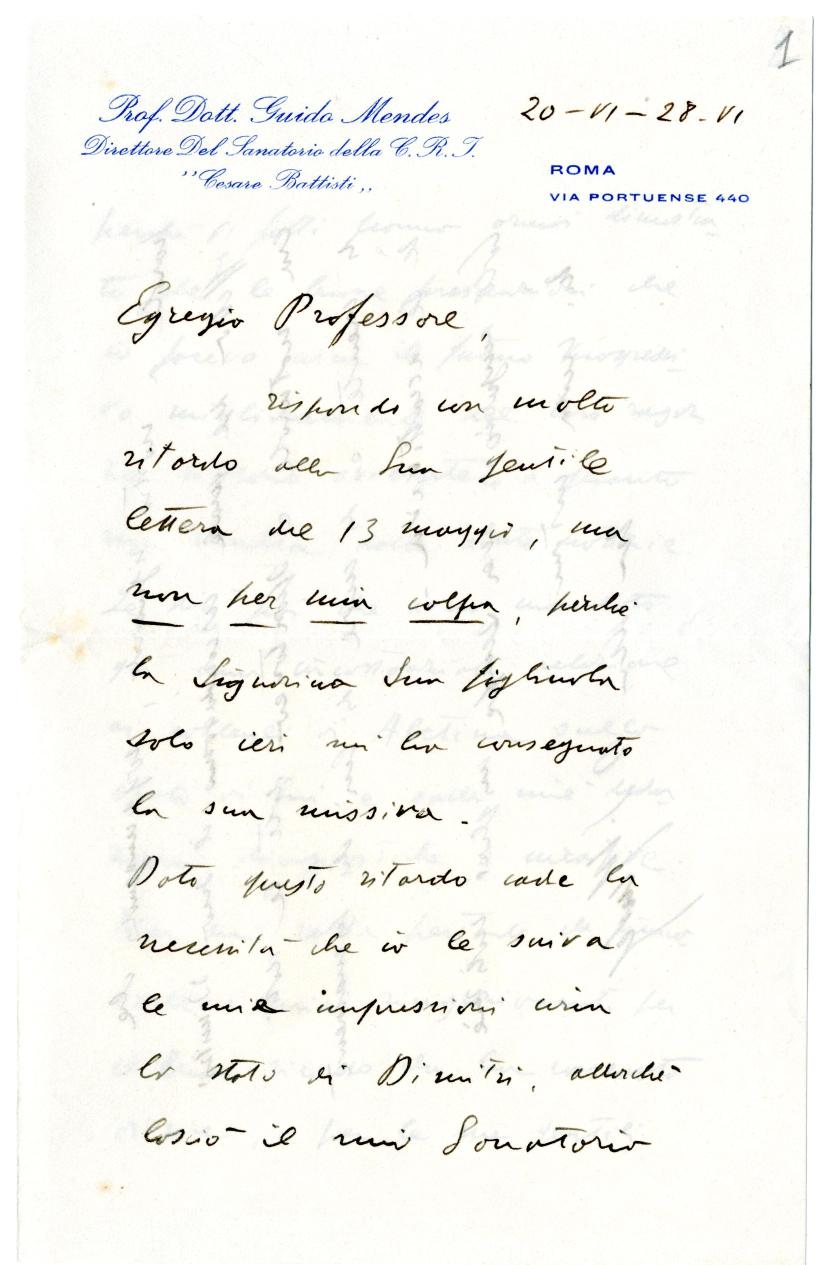 1
Prof. Dott. Guido Mendes
Direttore Del Sanatorio della C. R. I.
"Cesare Battisti"
20 - VI - 28 - VI
ROMA
VIA PORTUENSE 440
Egregio Professore,
rispondo con molto
ritardo alla Sua gentile
lettera del 13 maggio, ma
non per mia colpa, perché
la Signorina Sua figliuola
solo ieri mi ha consegnato
la sua missiva.
Dato questo ritardo cade la
necessità che io le scriva
le mie impressioni circa
lo stato di Dimitri, allorché
lasciò il mio Sanatorio